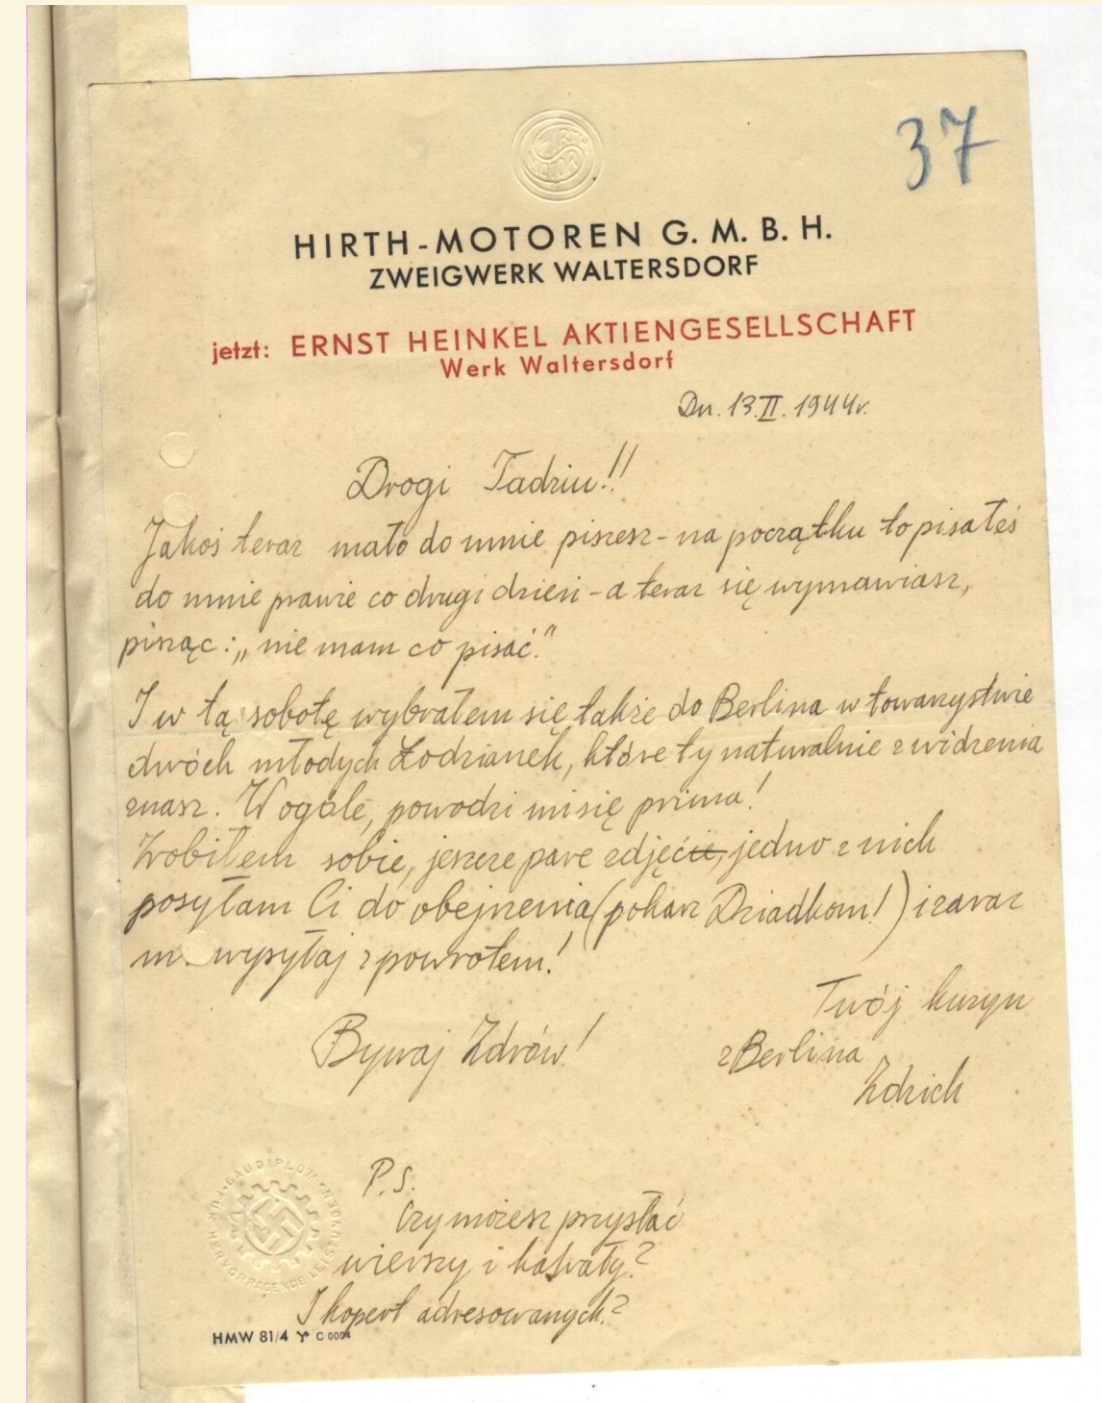 37
HIRTH-MOTOREN G. M. B. H.
ZWEIGWERK WALTERSDORF
jetzt: ERNST HEINKEL AKTIENGESELLSCHAFT
Werk Waltersdorf
Dn. 13.II. 1944r.
Drogi Tadziu!!
Jakoś teraz mało do mnie piszesz - na początku to pisałeś
do mnie prawie co drugi dzień - a teraz się wymawiasz,
pisząc: „nie mam co pisać."
I w tą sobotę wybrałem się także do Berlina w towarzystwie
dwóch młodych Łodzianek, które ty naturalnie z widzenia
znasz. W ogóle, powodzi mi się prima!
Zrobiłem sobie, jeszcze parę zdjęć, jedno z nich
posyłam Ci do obejrzenia (pokarz Dziadkom!) i zaraz
wysyłaj zpowrotem!
Bywaj Zdrów!
Twój kuzyn
z Berlina
Zdzich
GAUDIPLOM
FÜR HERVORRAGENDE LEISTUNGEN
P.S.
Czy możesz przysłać
wierszy i kawały?
I kopert adresowanych?
HMW 81/4 C 0004